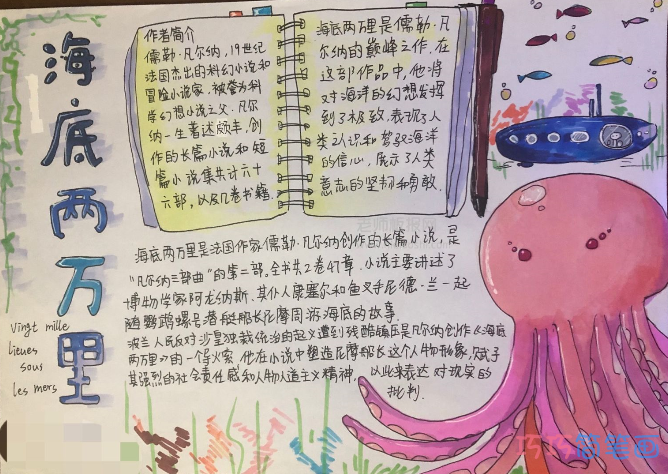 海底两万里
Vingt mille
lieues
sous
les mers
作者简介
儒勒·凡尔纳,19世纪
法国杰出的科幻小说和
冒险小说家,被誉为科
学幻想小说之父.凡尔
纳一生著述颇丰,创
作的长篇小说和短
篇小说集共计六十
六部,以及几卷书籍.
海底两万里是儒勒·凡
尔纳的巅峰之作.在
这部作品中,他将
对海洋的幻想发挥
到了极致.表现了人
类认识和驾驭海洋
的信心,展示了人类
意志的坚韧和勇敢.
海底两万里是法国作家儒勒·凡尔纳创作的长篇小说,是
“凡尔纳三部曲”的第二部。全书共2卷47章.小说主要讲述了
博物学家阿龙纳斯、其仆人康塞尔和鱼叉手尼德·兰一起
随鹦鹉螺号潜艇船长尼摩周游海底的故事.
波兰人民反对沙皇独裁统治的起义遭到残酷镇压是凡尔纳创作《海底
两万里》的一个导火索.他在小说中塑造尼摩船长这个人物形象,赋予
其强烈的社会责任感和人物人道主义精神,以此来表达对现实的
批判.
巧巧简笔画